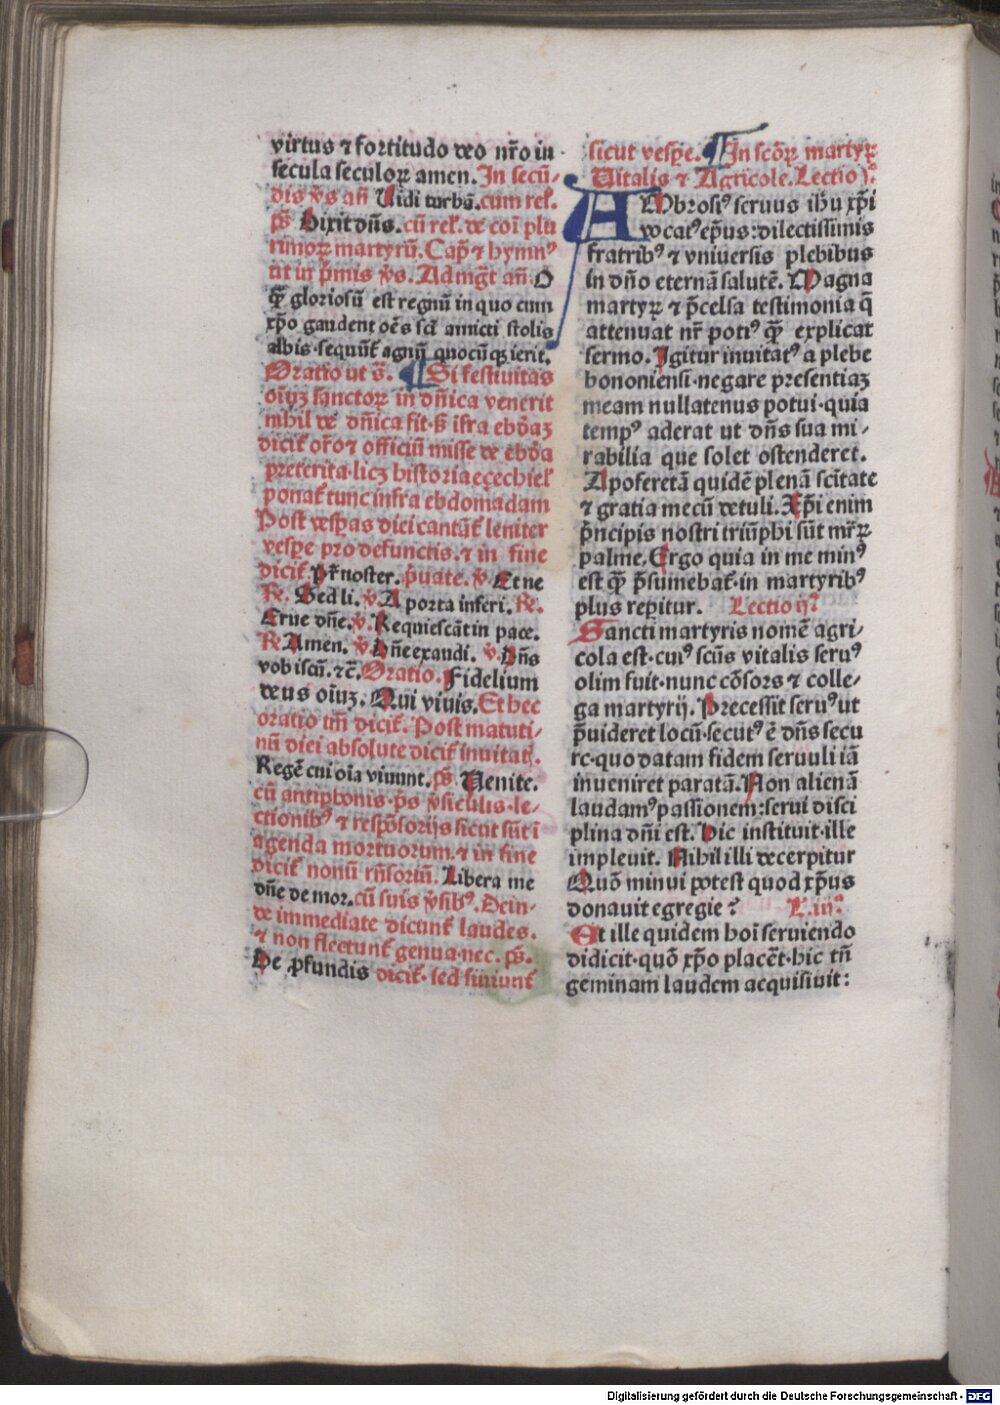 virtus ⁊ fortitudo deo nr̄o in
secula seculoꝝ amen. In secū-
dis v̄s an̄ Uidi turbā. cum rel̄.
ps̄ Dixit dn̄s. cū rel̄. de cōi plu
rimoꝝ martyrū. Cap̄ ⁊ hymnꝰ
ut in p̄mis v̄s. Ad mḡt an̄. O
q̄ꝫ gloriosū est regnū in quo cum
xp̄o gaudent oēs sc̄i amicti stolis
albis. sequūt̄ agnū quocūqꝫ ierit.
Oratio ut s̄. ¶ Si festiuitas
oīuꝫ sanctoꝝ in dn̄ica venerit
nihil de dn̄ica fit. sꝫ ifra ebdaꝫ
dicit̄ or̄o ⁊ officiū misse de ebda
preterita. licꝫ historia eçechiel̄
ponat̄ tunc infra ebdomadam
Post vesp̄as diei cantāt̄ leniter
vesp̄e pro defunctis. ⁊ in fine
dicit̄. Pr̄ noster. p̄uate. v̄. Et ne
R̄. Sed li. v̄. A porta inferi. R̄.
Erue dn̄e. v̄. Requiescāt in pace.
R̄. Amen. v̄. Dn̄e exaudi. v̄. Dn̄s
vobiscū. ⁊c̄. Oratio. Fidelium
deus oīuꝫ. Qui viuis. Et hec
oratio tm̄ dicit̄. Post matuti-
nū diei absolute dicit̄ inuitat̄.
Regē cui oīa viuunt. ps̄. Uenite.
cū antiphonis. ps̄ v̄siculis. le-
ctionibꝰ ⁊ respōsorijs sicut sūt ī
agenda mortuorum. ⁊ in fine
dicit̄ nonū rn̄soriū. Libera me
dn̄e de mor. cū suis v̄sibꝰ. Dein-
de immediate dicunt̄ laudes.
⁊ non flectunt̄ genua. nec. ps̄.
De ꝓfundis dicit̄. sed finiunt̄
sicut vesp̄e. ¶ In scōꝝ martyꝝ
Uitalis ⁊ Agricole. Lectio j.ᵃ
AMbrosiꝰ seruus ih̄u xp̄i
vocatꝰ ep̄us: dilectissimis
fratribꝰ ⁊ vniuersis plebibus
in dn̄o eternā salutē. Magna
martyꝝ ⁊ p̄celsa testimonia q̄
attenuat nr̄ potiꝰ q̄ꝫ explicat
sermo. Igitur inuitatꝰ a plebe
bononiensi. negare presentiaꝫ
meam nullatenus potui. quia
tempꝰ aderat ut dn̄s sua mi-
rabilia que solet ostenderet.
Apoferetā quidē plenā scītate
⁊ gratia mecū detuli. Xp̄i enim
p̄ncipis nostri triūphi sūt mr̄ꝝ
palme. Ergo quia in me minꝰ
est q̄ꝫ p̄sumebat̄. in martyribꝰ
plus repitur. Lectio ij.ᵃ
Sancti martyris nomē agri-
cola est. cuiꝰ scūs vitalis seruꝰ
olim fuit. nunc cōsors ⁊ colle-
ga martyrij. Precessit seruꝰ ut
p̄uideret locū. secutꝰ ē dn̄s secu
re. quo datam fidem seruuli iā
inueniret paratā. Non alienā
laudamꝰ passionem: serui disci
plina dn̄i est. Hic instituit. ille
impleuit. Nihil illi decerpitur
Quō minui potest quod xp̄us
donauit egregie? L. iij.ᵃ
Et ille quidem hoi seruiendo
didicit. quō xp̄o placēt. hic tn̄
geminam laudem acquisiuit:
Digitalisierung gefördert durch die Deutsche Forschungsgemeinschaft - DFG